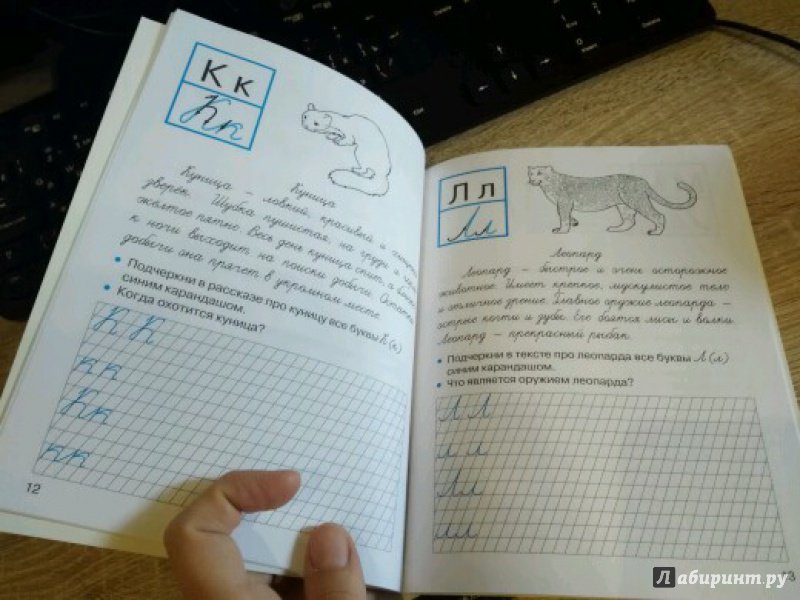 К к
Кк
Куница
Куница – ловкий, красивый и
зверёк. Шубка пушистая, на груди и
жёлтое пятно. Весь день куница спит, а ближе
к ночи выходит на поиски добычи. Остатки
добычи она прячет в укромном месте.
• Подчеркни в рассказе про куницу все буквы К (к)
синим карандашом.
• Когда охотится куница?
К К
к к
Кк
кк
12
Л л
Лл
Леопард
Леопард – быстрое и очень осторожное
животное. Имеет крепкое, мускулистое тело
и отличное зрение. Главное оружие леопарда –
острые когти и зубы. Его боятся лисы и волки.
Леопард – прекрасный рыбак.
• Подчеркни в тексте про леопарда все буквы Л (л)
синим карандашом.
• Что является оружием леопарда?
Л Л
л л
Лл
лл
Лабиринт.ру